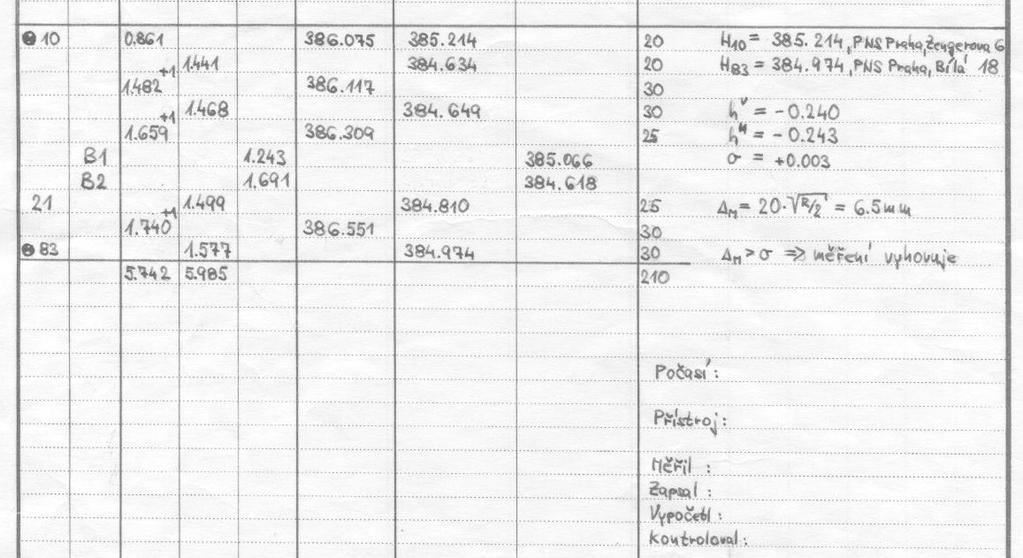 10 0.861 386.075 385.214 20 H10 = 385.214, PNS Praha, Zengerova 6
1.441 384.634 20 H83 = 384.974, PNS Praha, Bílá 18
+1 1.482 386.117 30
1.468 384.649 30 hᵛ = -0.240
+1 1.659 386.309 25 hᴹ = -0.243
B1 1.243 385.066 σ = +0.003
B2 1.691 384.618
21 1.499 384.810 25 ΔM = 20·√R/2 = 6.5mm
+1 1.740 386.551 30
83 1.577 384.974 30 ΔM > σ => měření vyhovuje
5.742 5.985 210
Počasí:
Přístroj:
Měřil :
Zapsal :
Vypočetl :
Kontroloval :